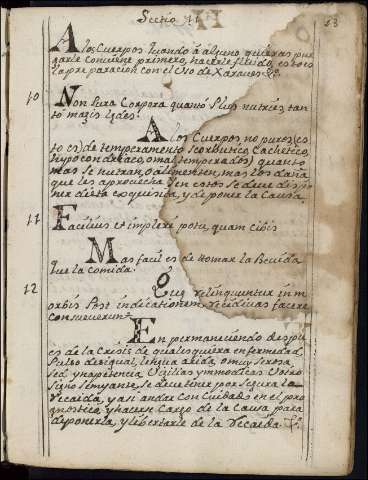 Sectio II
A los Cuerpos quando á alguno quieras pur
garle Conviene primero, hacerle fluido, esto es
la preparacion con el Uso de Xaraves &c.
10 Non pura Corpora quantó Plus nutries, tan
tó magis lædes.
A los Cuerpos no puros (es
to es) de temperamento scorbutico, Cachetico,
hypocondriaco, o mal temperados) quanto
mas se nutran, o alimenten, mas los daña
que les aprovecha, en estos se deve dispo
ner dieta exquisita, y deponer la Causa.
11 Facilius est impleri potu, quam Cibis
Mas facil es de tomar la Bevida
que la comida.
12 Quæ relinquuntur in m
orbis Post indicationem, recidivas facere
consueverunt.
En permaneciendo despu
es de la Crisis de qualesquiera enfermedad
Pulso desigual, lengua arida, o muy serosa,
sed, ynapetencia, Vigilias ymmodicas, U otro
signo semejante, se deve tener por segura la
recaida, y asi andar Con Cuidado en el pro
gnostico, y hacer Cargo de la Causa para
deponerla, y libertarle de la recaida. &c.